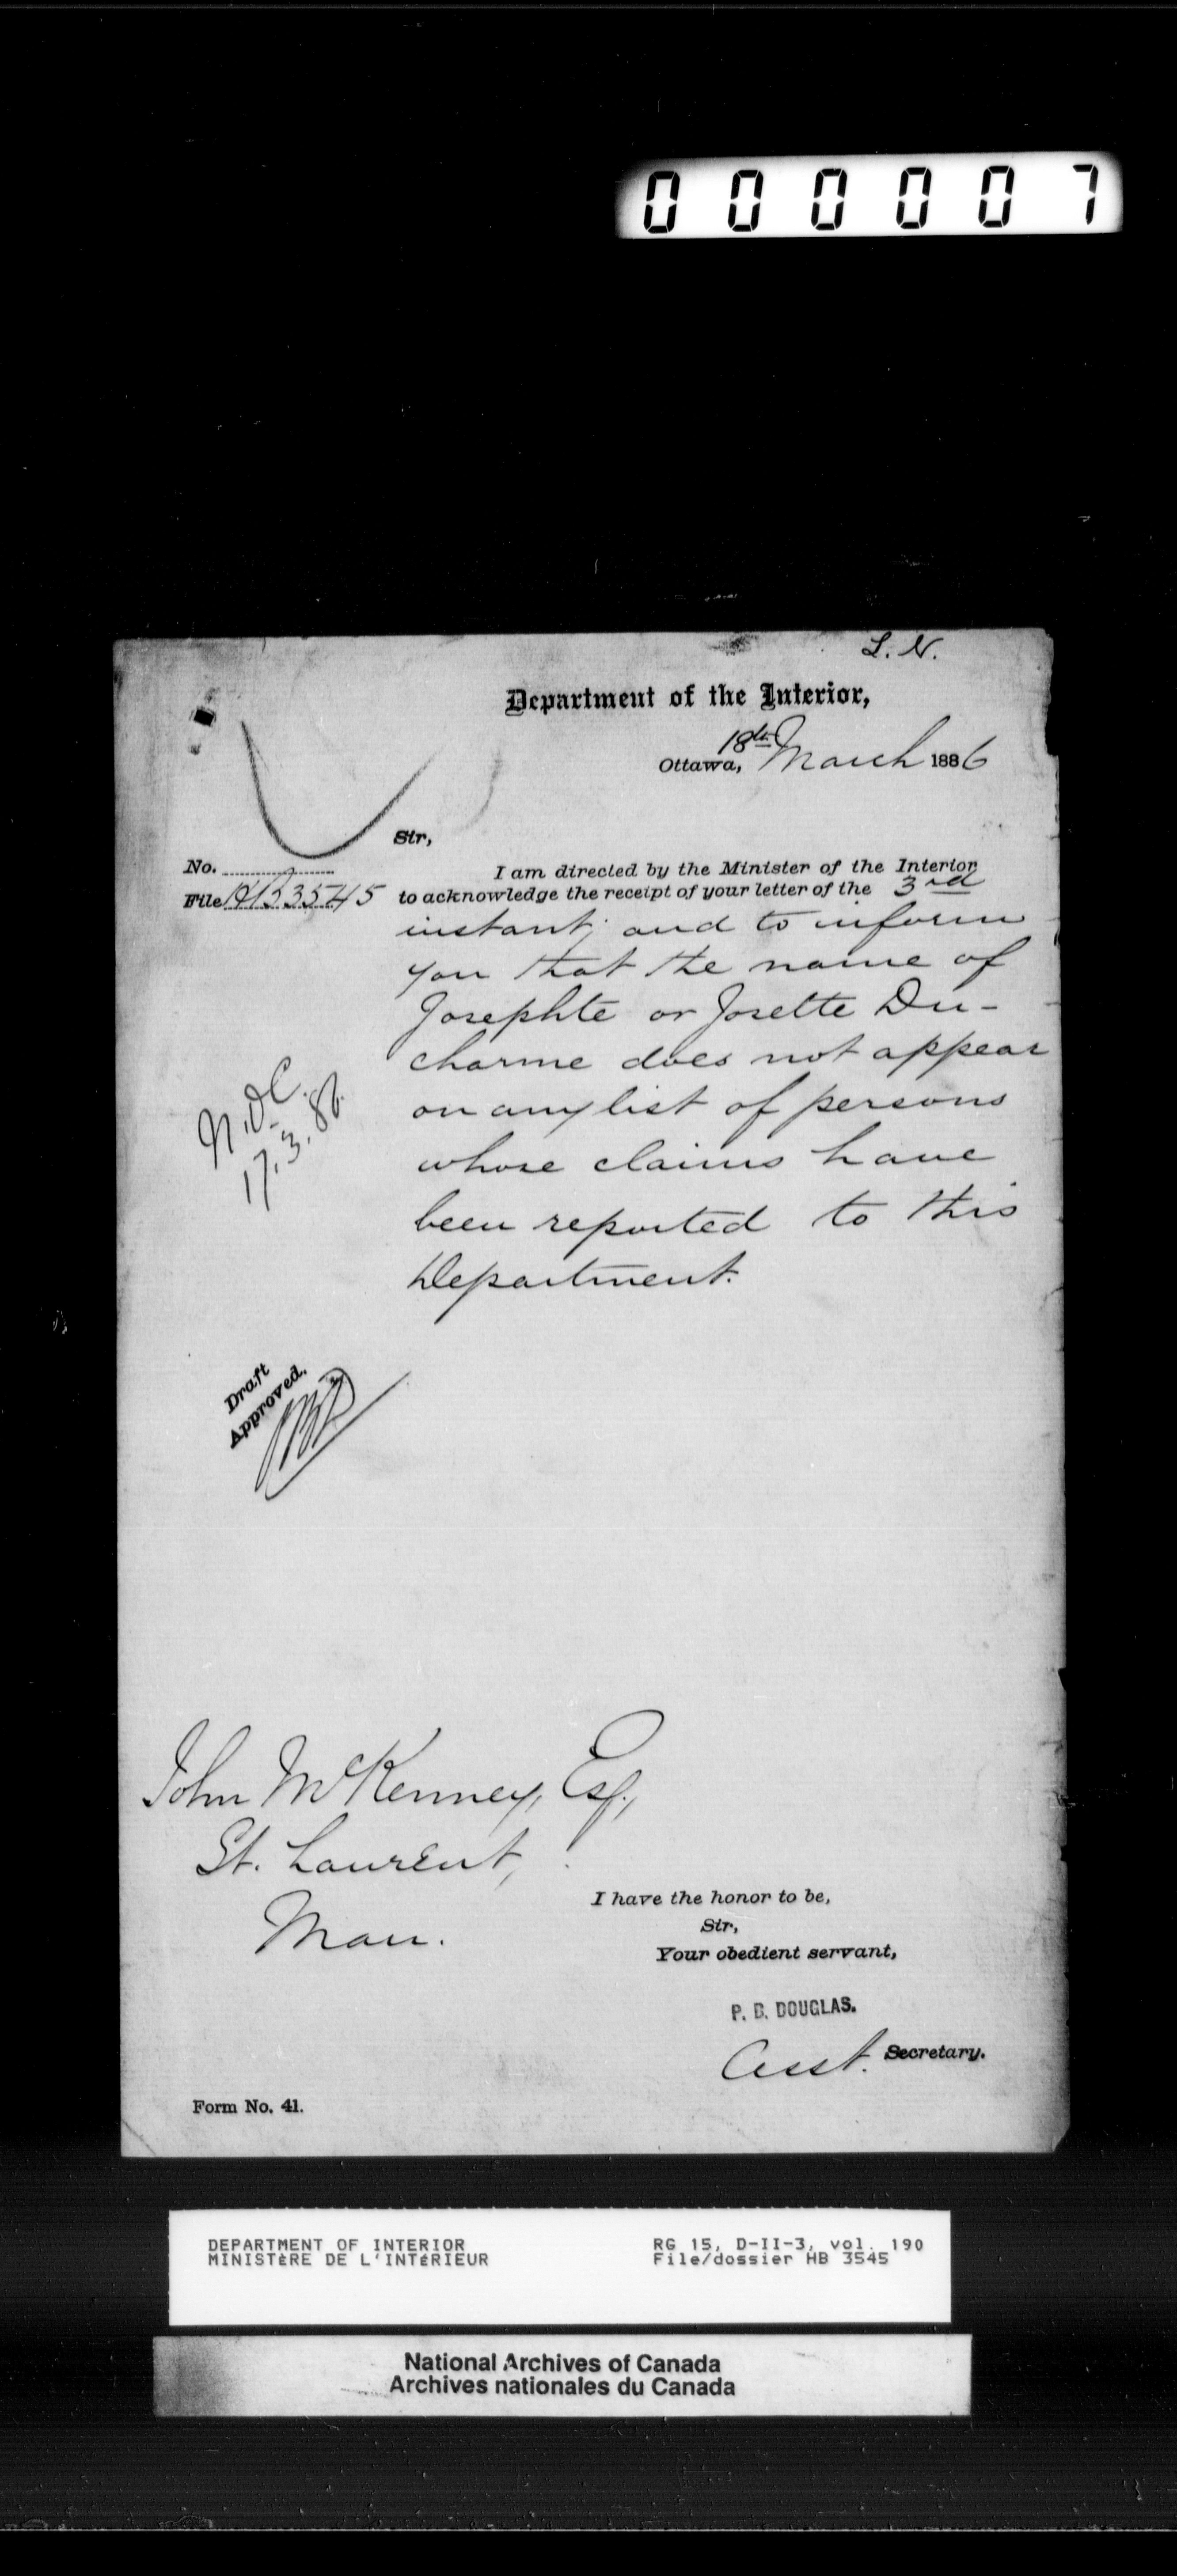 000007
L. N.
Department of the Interior,
Ottawa, 18th March 1886
Sir,
No.
I am directed by the Minister of the Interior
File HB 3545
to acknowledge the receipt of your letter of the 3rd
instant, and to inform
you that the name of
Josephte or Josette Du-
charme does not appear
on any list of persons
whose claims have
been reported to this
Department.
N.O.C.
17.3.86.
Draft
Approved.
John McKenney, Esq.,
St. Laurent,
Man.
I have the honor to be,
Sir,
Your obedient servant,
P. B. DOUGLAS.
Asst. Secretary.
Form No. 41.
DEPARTMENT OF INTERIOR
MINISTÈRE DE L'INTÉRIEUR
RG 15, D-II-3, vol. 190
File/dossier HB 3545
National Archives of Canada
Archives nationales du Canada